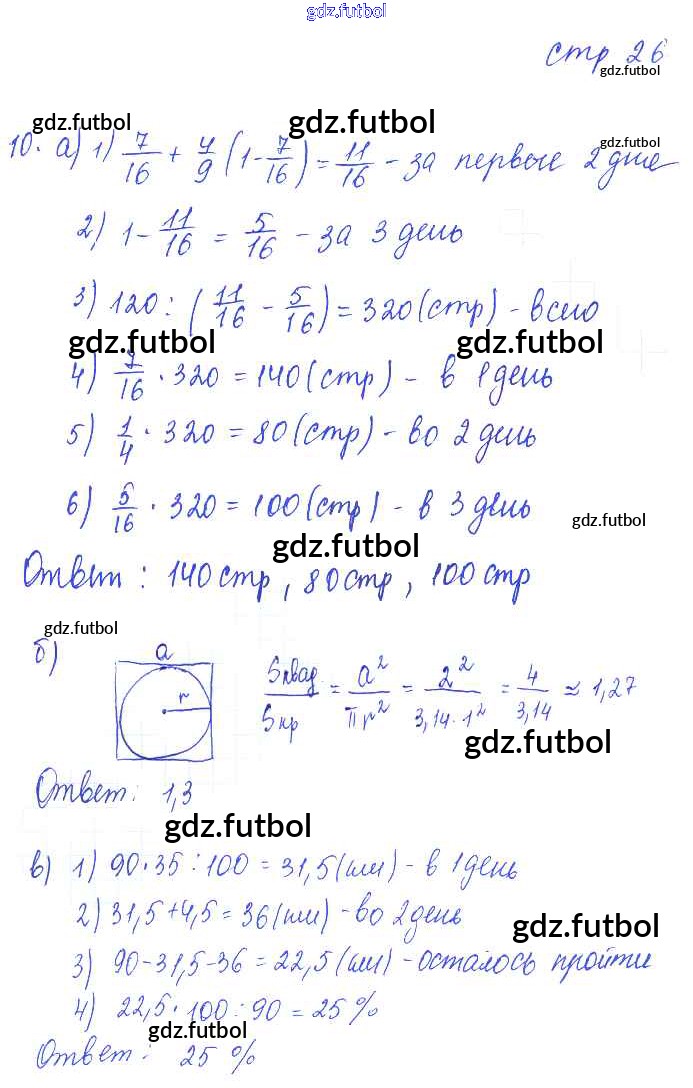 gdz.futbol
стр 26
gdz.futbol
gdz.futbol
gdz.futbol
gdz.futbol
10. а) 1) 7/16 + 4/9 (1 - 7/16) = 11/16 - за первые 2 дня
2) 1 - 11/16 = 5/16 - за 3 день
3) 120 : (11/16 - 5/16) = 320 (стр) - всего
gdz.futbol
gdz.futbol
4) 7/16 · 320 = 140 (стр) - в 1 день
5) 1/4 · 320 = 80 (стр) - во 2 день
6) 5/16 · 320 = 100 (стр) - в 3 день
gdz.futbol
gdz.futbol
Ответ : 140 стр, 80 стр, 100 стр
gdz.futbol
б)
a
r
Sквад/Sкр = a²/πr² = 2²/3,14·1² = 4/3,14 ≈ 1,27
gdz.futbol
Ответ: 1,3
gdz.futbol
в) 1) 90·35:100 = 31,5 (км) - в 1 день
2) 31,5+4,5 = 36 (км) - во 2 день
gdz.futbol
3) 90-31,5-36 = 22,5 (км) - осталось пройти
4) 22,5·100:90 = 25 %
gdz.futbol
Ответ: 25 %